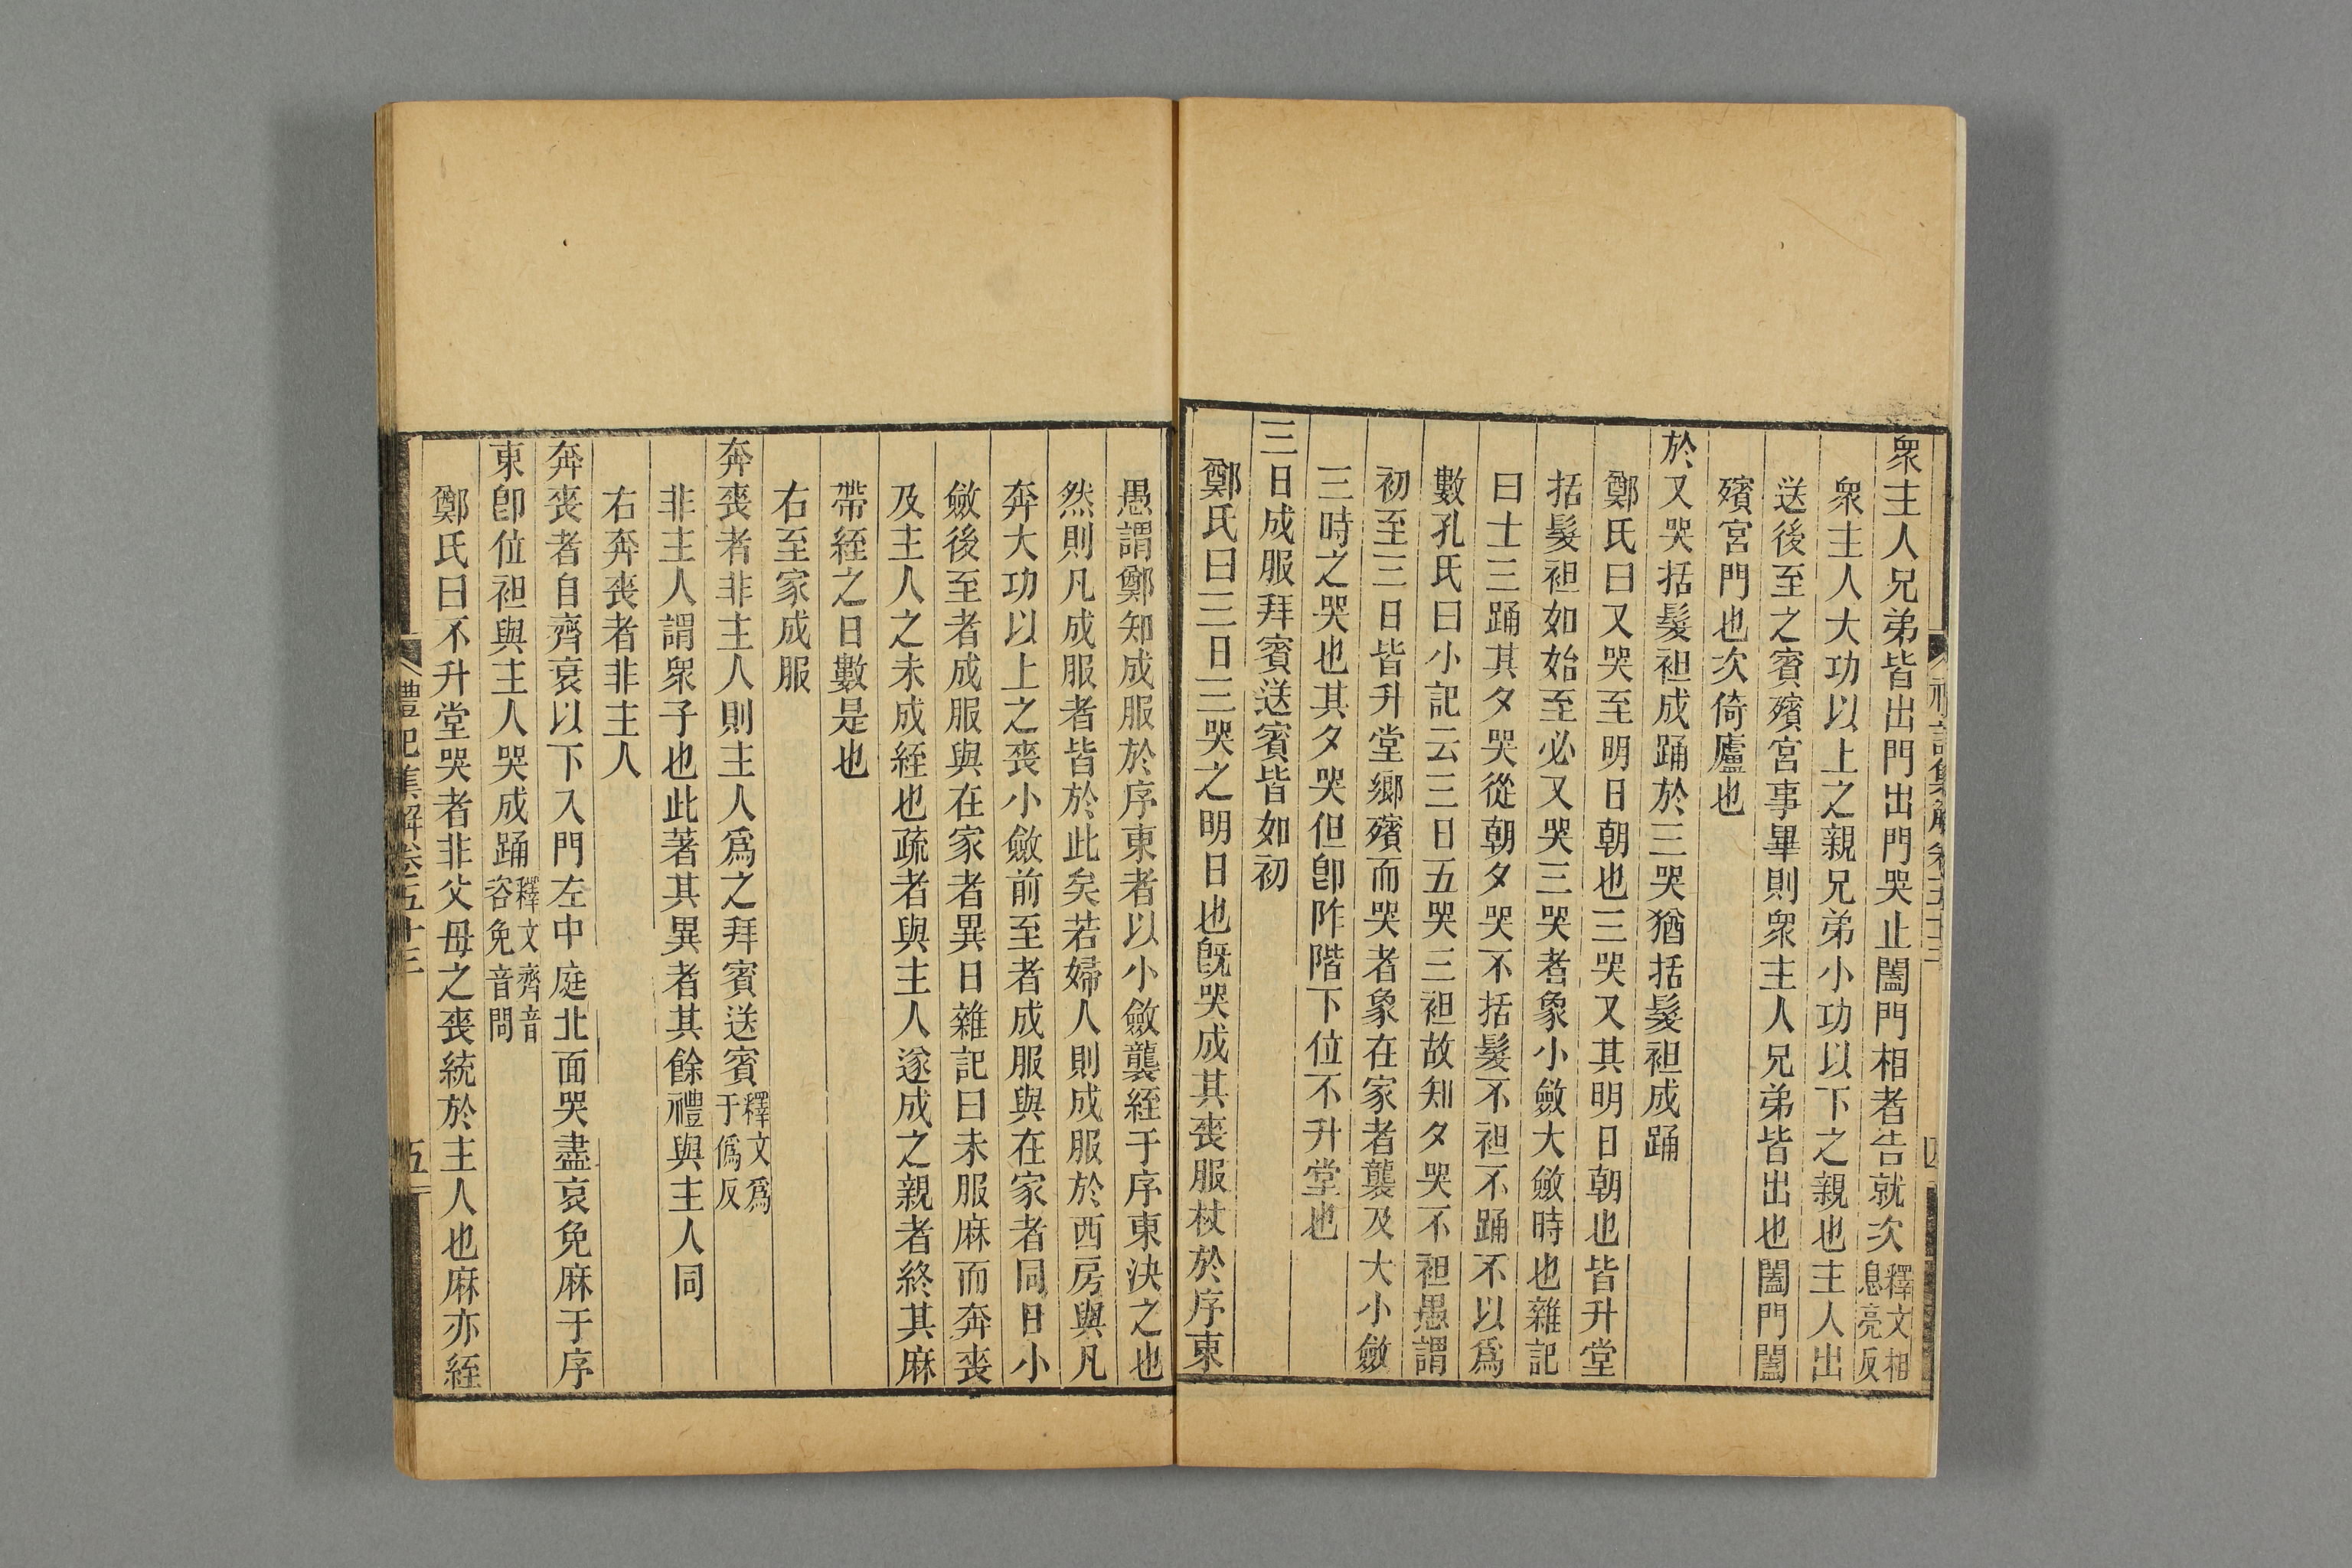 衆主人兄弟皆出門出門哭止闔門相者告就次釋文相息亮反
衆主人大功以上之親兄弟小功以下之親也主人出
送後至之賓殯宮事畢則衆主人兄弟皆出也闔門闔
殯宮門也次倚廬也
於又哭括髮袒成踊於三哭猶括髮袒成踊
鄭氏曰又哭至明日朝也三哭又其明日朝也皆升堂
括髮袒如始至必又哭三哭者象小斂大斂時也雜記
曰士三踊其夕哭從朝夕哭不括髮不袒不踊不以爲
數孔氏曰小記云三日五哭三袒故知夕哭不袒愚謂
初至三日皆升堂鄉殯而哭者象在家者襲及大小斂
三時之哭也其夕哭但卽阼階下位不升堂也
三日成服拜賓送賓皆如初
鄭氏曰三日三哭之明日也旣哭成其喪服杖於序東
愚謂鄭知成服於序東者以小斂襲絰于序東決之也
然則凡成服者皆於此矣若婦人則成服於西房與凡
奔大功以上之喪小斂前至者成服與在家者同日小
斂後至者成服與在家者異日雜記曰未服麻而奔喪
及主人之未成絰也疏者與主人遂成之親者終其麻
帶絰之日數是也
右至家成服
奔喪者非主人則主人爲之拜賓送賓釋文爲于僞反
非主人謂衆子也此著其異者其餘禮與主人同
右奔喪者非主人
奔喪者自齊衰以下入門左中庭北面哭盡哀免麻于序
東卽位袒與主人哭成踊釋文齊音咨免音問
鄭氏曰不升堂哭者非父母之喪統於主人也麻亦絰
禮記集解卷五十三
五